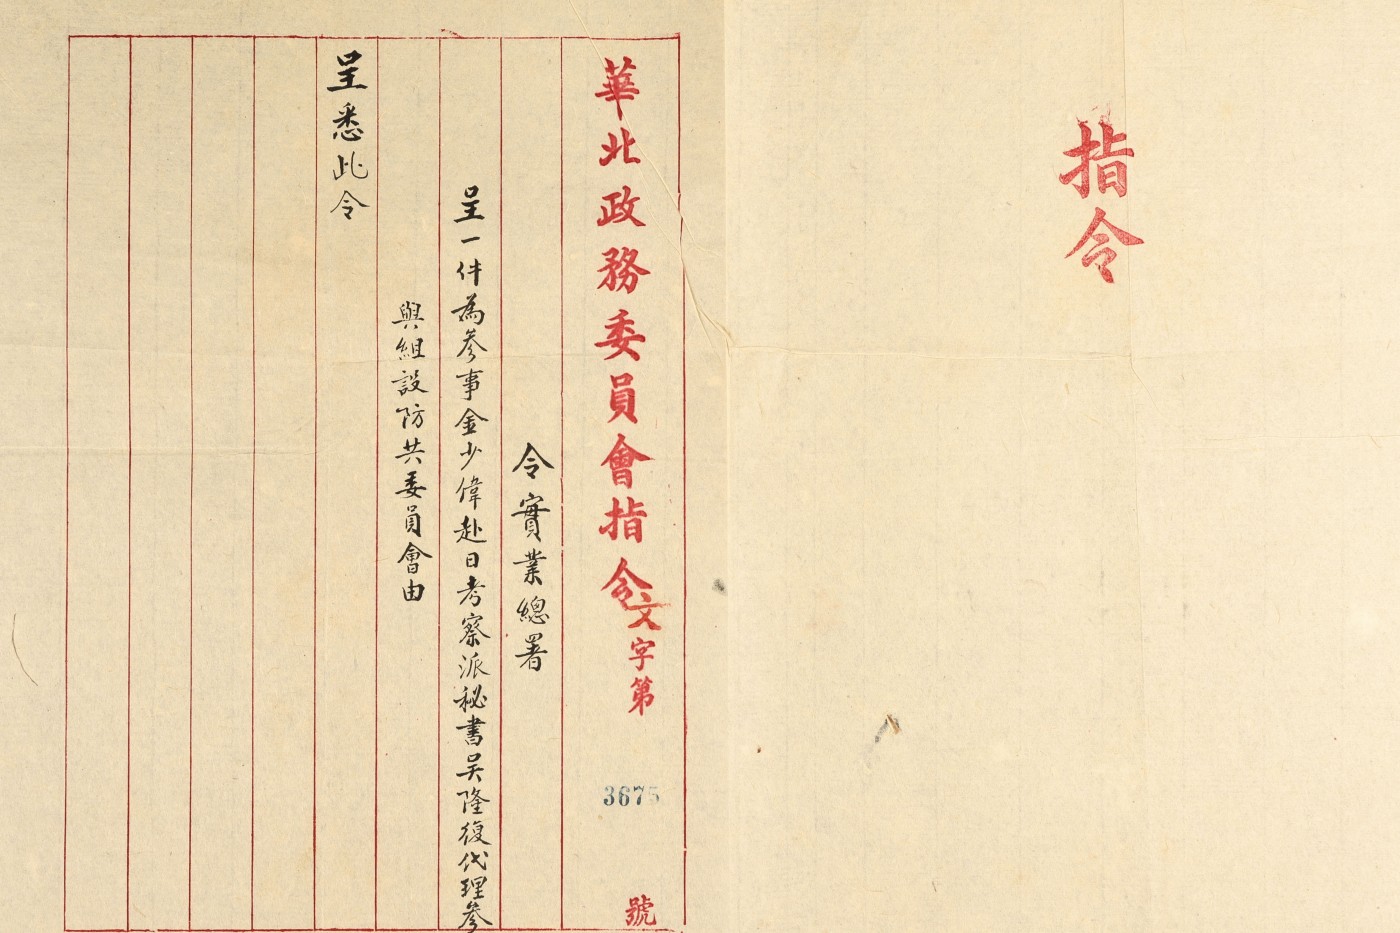 指令
華北政務委員會指令文字第3675號
令實業總署
呈一件為參事金少偉赴日考察派秘書吴隆復代理參
與組設防共委員會由
呈悉此令